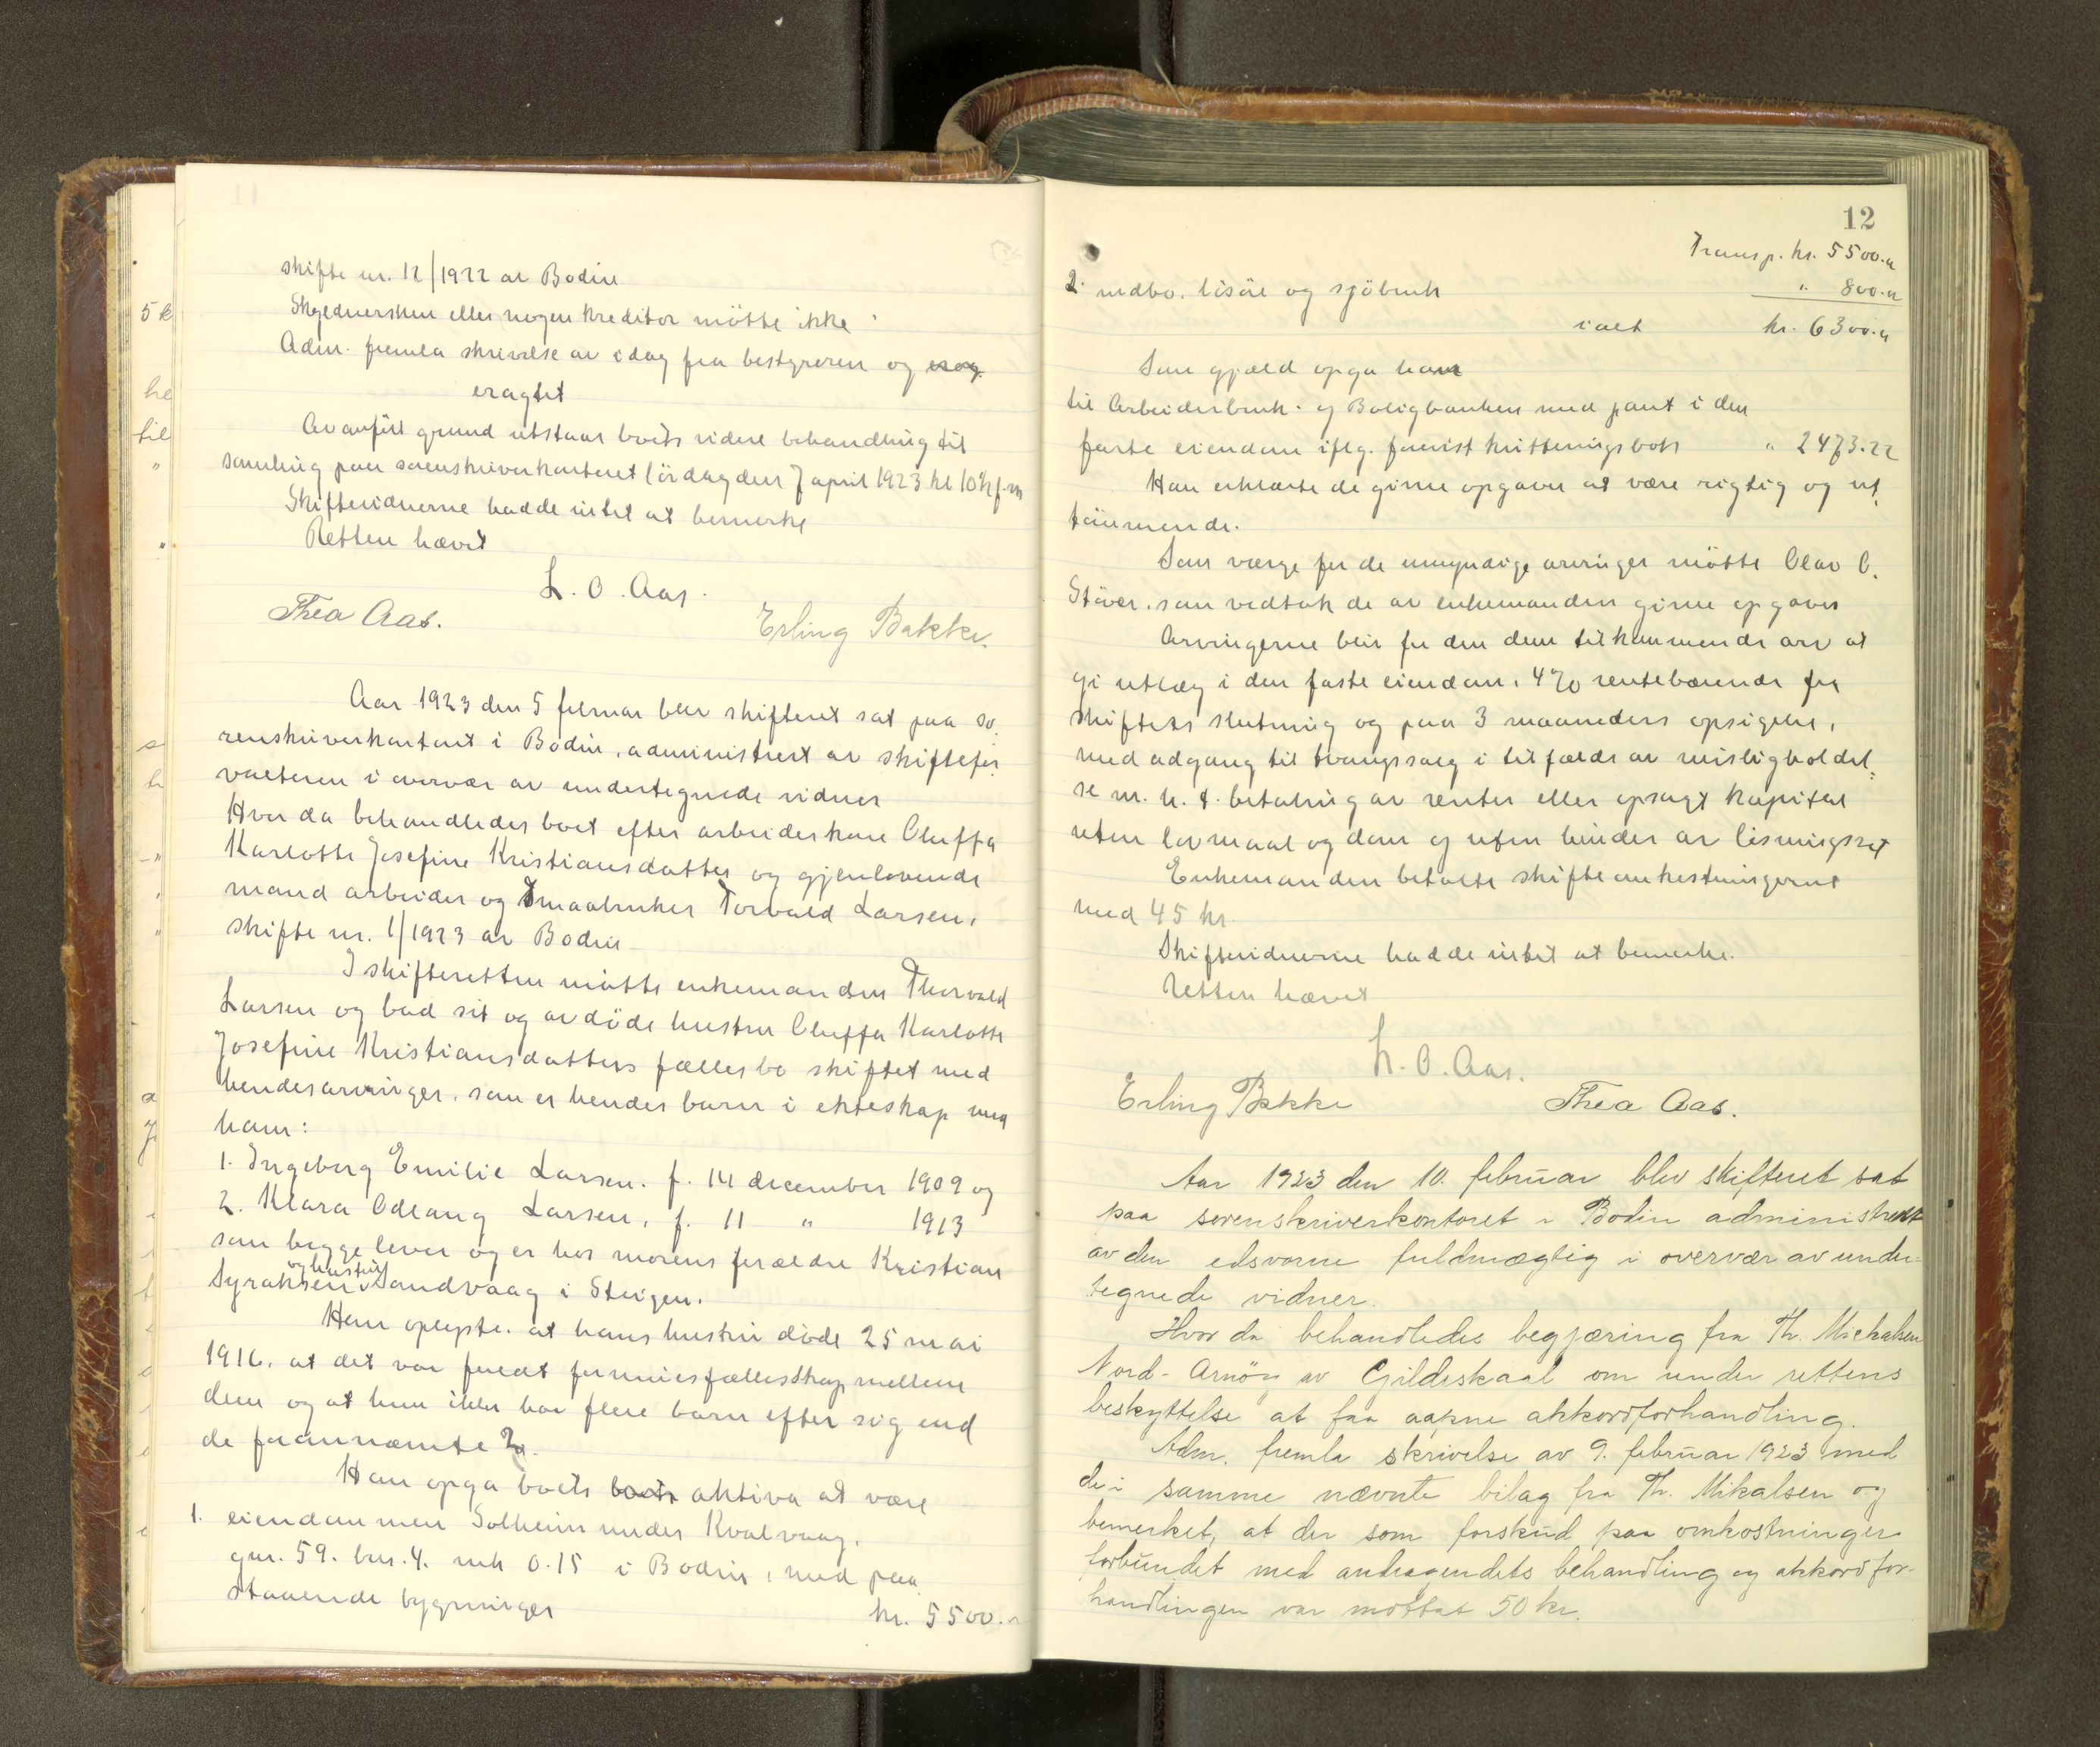 skifte nr. 12/1922 av Bodin
Skyldnersken eller nogen kreditor mötte ikke
Adm. fremla skrivelse av idag fra bestyreren og
eragtet
Av anført grund utstaar boets videre behandling til
samling paa sorenskriverkontoret lördag den 7 april 1923 kl 10½ f.m
Skiftevidnerne hadde intet at bemerke
Retten hævet
L. O. Aas.
Thea Aas. Erling Bakke.
Aar 1923 den 5 februar blev skifteret sat paa so
renskriverkontoret i Bodin, administrert av skiftefor
valteren i overvær av undertegnede vidner
Hvor da behandledes boet efter arbeiderkone Oluffa
Karlotte Josefine Kristiansdatter og gjenlevende
mand arbeider og Smaabruker Torvald Larsen,
skifte nr. 1/1923 av Bodin
I skifteretten mötte enkemanden Thorvald
Larsen og bad sit og avdöde hustru Oluffa Karlotte
Josefine Kristiansdatters fællesbo skiftet med
hendes arvinger, som er hendes barn i ekteskap med
ham:
1. Ingeborg Emilie Larsen. f. 14 december 1909 og
2. Klara Odlaug Larsen, f. 11 " 1913
som begge lever og er hos morens forældre Kristian
og hustru
Syraksen Sandvaag i Steigen.
Han oplyste. at hans hustru döde 25 mai
1916. at det var fuldt formuesfællesskap mellem
dem og at hun ikke har flere barn efter sig end
de forannævnte 2.
Han opga boets boets aktiva at være
1. eiendommen Solheim under Kvalvaag,
gnr. 59. bnr. 4. mk 0.15 i Bodin, med paa
staaende bygninger kr. 5500.-
12
Transp. kr. 5500.-
2. indbo. lösöre og sjöbruk " 800.-
ialt kr. 6300.-
Som gjæld opga han
til Arbeiderbruk- og Boligbanken med pant i den
faste eiendom iflg. forevist kvitteringsbok " 2473.22
Han erklærte de givne opgaver at være rigtig og ut
tömmende.
Som verge for de umyndige arvinger mötte Olav O.
Stöver, som vedtok de av enkemanden givne opgaver
Arvingerne blir for den dem tilkommende arv at
gi utlæg i den faste eiendom, 4% rentebærende fra
skiftets slutning og paa 3 maaneders opsigelse,
med adgang til tvangssalg i tilfælde av misligholdel=
se m. h. t. betaling av renter eller opsagt kapital
uten lovmaal og dom og uten hinder av lösningsret
Enkemanden betalte skifteomkostningerne
med 45 kr.
Skiftevidnerne hadde intet at bemerke.
Retten hævet
L. O. Aas.
Erling Bakke Thea Aas.
Aar 1923 den 10. februar blev skifteret sat
paa sorenskriverkontoret i Bodin administrert
av den edsvorne fuldmægtig i overvær av under-
tegnede vidner.
Hvor da behandledes begjæring fra Th. Mickalsen
Nord-Arnöy av Gildeskaal om under rettens
beskyttelse at faa aapne akkordforhandling.
Adm. fremla skrivelse av 9. februar 1923 med
de i samme nævnte bilag fra Th. Mikalsen og
bemerket, at der som forskud paa omkostninger
forbundet med andragendets behandling og akkordfor-
handlingen var mottat 50 kr.